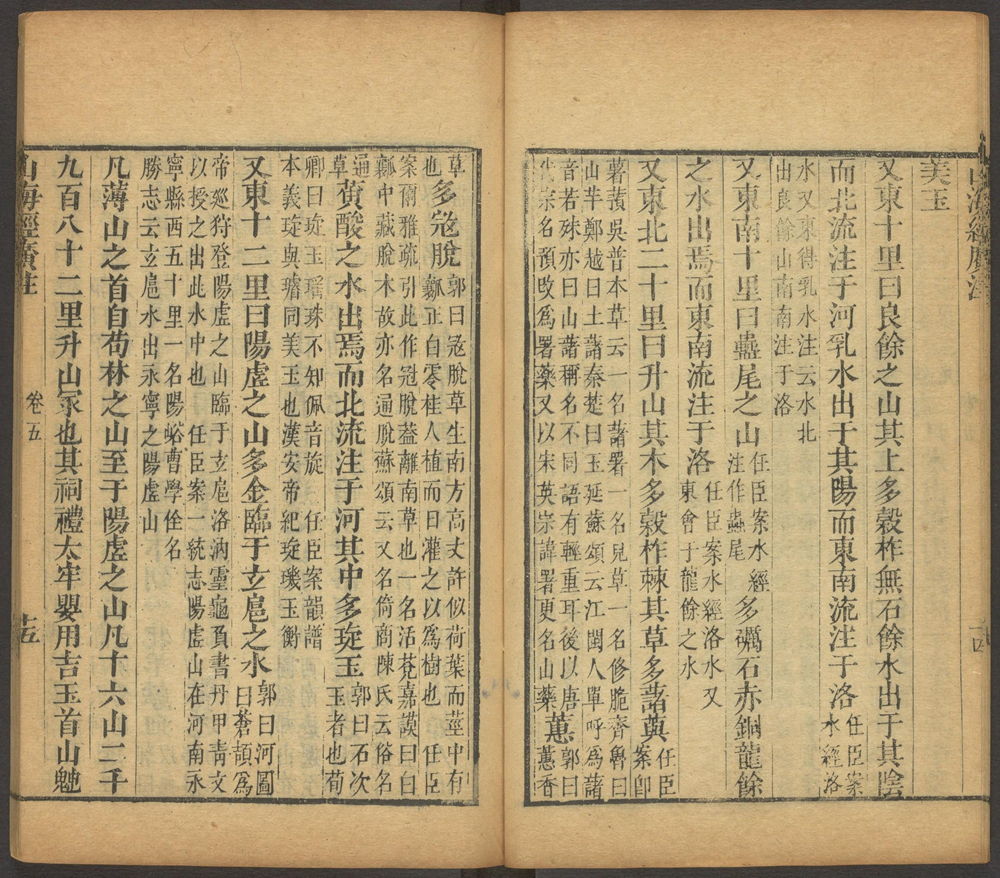 山海經廣注
美玉
又東十里曰良餘之山其上多榖柞無石餘水出于其陰
而北流注于河乳水出于其陽而東南流注于洛任臣案水經洛
水又東得乳水注云水北
出良餘山南南注于洛
又東南十里曰蠱尾之山任臣案水經注作蠱尾多礪石赤銅龍餘
之水出焉而東南流注于洛任臣案水經洛水又東會于龍餘之水
又東北二十里曰升山其木多榖柞棘其草多藷藇任臣案卽
薯蕷吳普本草云一名諸署一名兒草一名修脆齊魯曰
山芋鄭越曰土藷秦楚曰玉延蘇頌云江閩人單呼爲藷
音若殊亦曰山藷稱名不同語有輕重耳後以唐
代宗名預改爲署藥又以宋英宗諱署更名山藥蕙郭曰蕙香
草
也多寇脫郭曰寇脫草生南方高丈許似荷葉而莖中有瓤正白零桂人植而日灌之以爲樹也任臣
案爾雅疏引此作冠脫葢離南草也一名活莌嘉謨曰白
瓤中藏脫木故亦名通脫蘇頌云又名倚商陳氏云俗名
通
草黃酸之水出焉而北流注于河其中多琁玉郭曰石次玉者也荀
卿曰琁玉瑶珠不知佩音旋任臣案韻譜
本義琁與璿同美玉也漢安帝紀琁璣玉衡
又東十二里曰陽虛之山多金臨于玄扈之水郭曰河圖曰蒼頡爲
帝廵狩登陽虛之山臨于玄扈洛汭靈龜負書丹甲青文
以授之出此水中也任臣案一統志陽虛山在河南永
寧縣西五十里一名陽峪曹學佺名
勝志云玄扈水出永寧之陽虛山
凡薄山之首自苟林之山至于陽虛之山凡十六山二千
九百八十二里升山冢也其祠禮太牢嬰用吉玉首山䰠
山海經廣注 卷五 十五